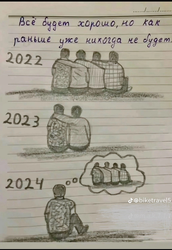 Всё будет хорошо, но как
раньше уже никогда не будет
2022
2023
2024
@biketravel5